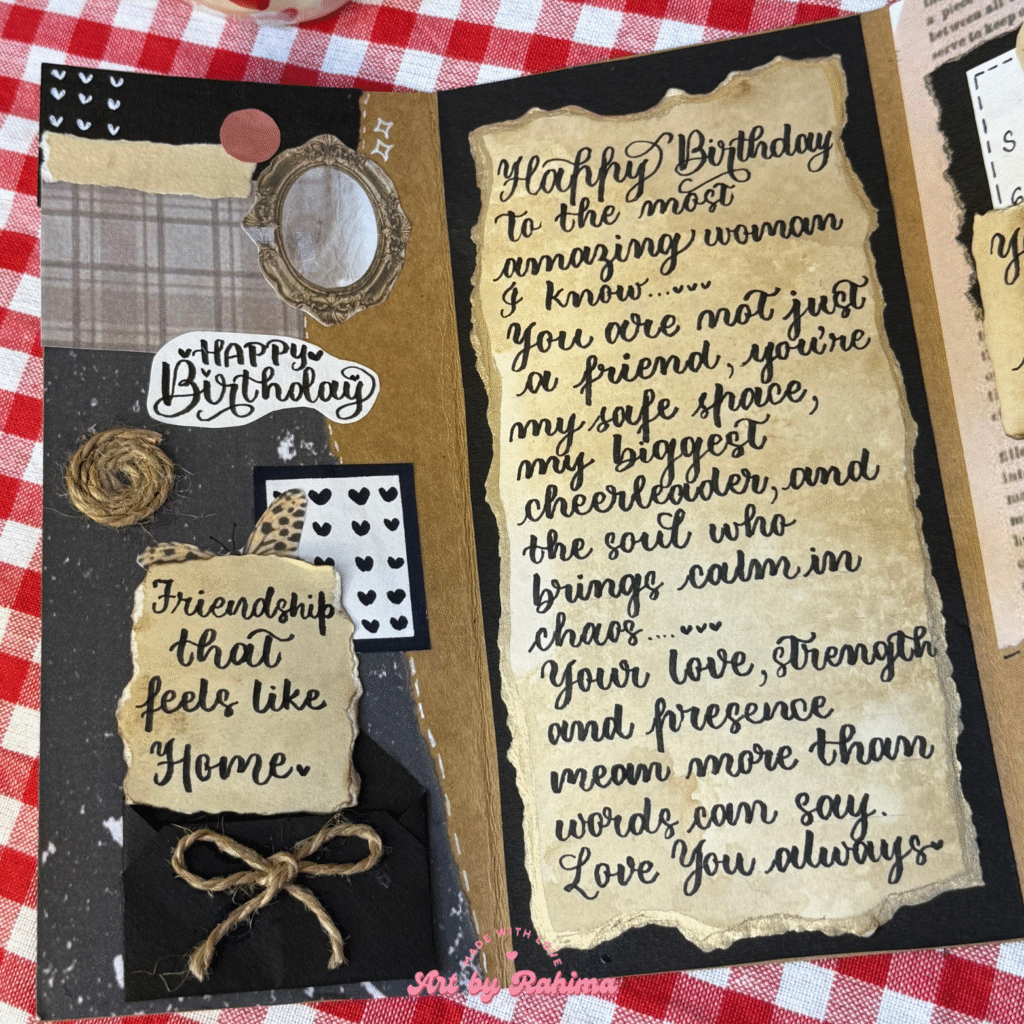 HAPPY
Birthday
Friendship
that
feels like
Home.
Happy Birthday
to the most
amazing woman
I know...
You are not just
a friend, you're
my safe space,
my biggest
cheerleader, and
the soul who
brings calm in
chaos....
Your love, strength
and presence
mean more than
words can say.
Love You always
a piece
between all
serve to keep
S
6
MADE WITH LOVE
Art by Rahima